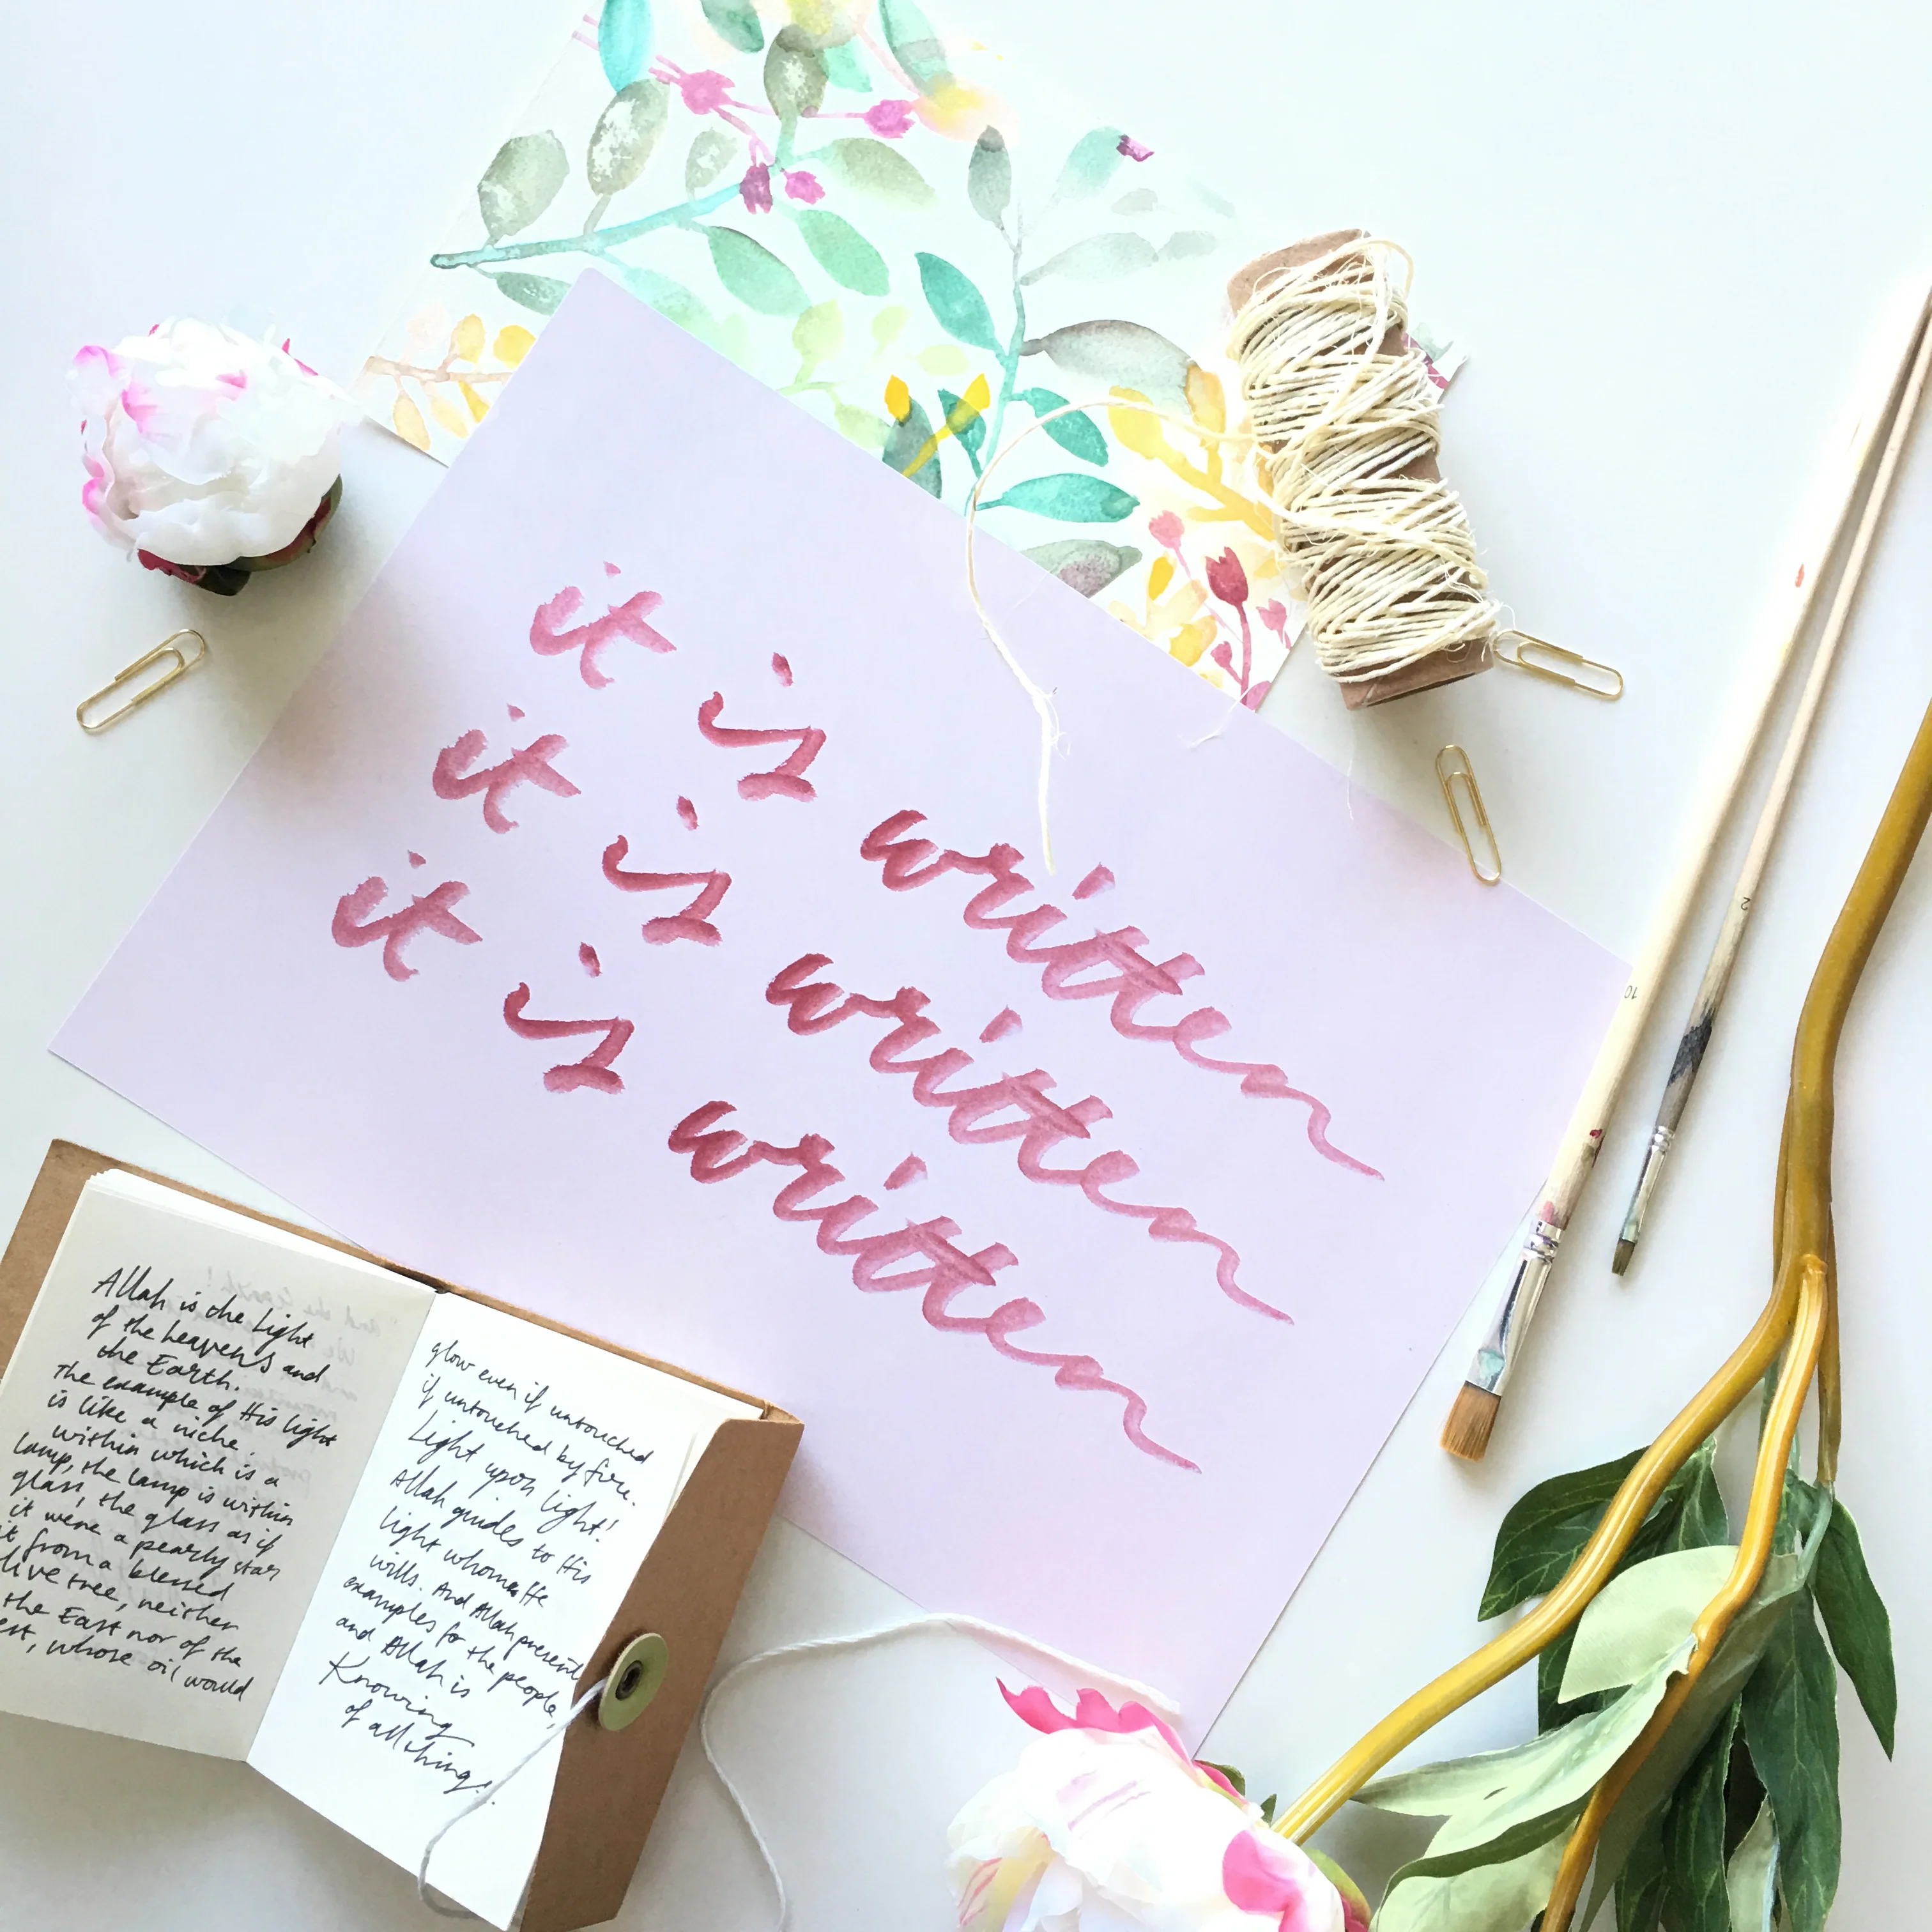 it is written
it is written
it is written
Allah is the Light
of the heavens and
the Earth.
The example of His light
is like a niche
within which is a
lamp, the lamp is within
glass, the glass as if
it were a pearly star
from a blessed
tree, neither
the East nor of the
whose oil would
glow even if untouched
if untouched by fire.
Light upon light!
Allah guides to His
light whom He
wills. And Allah present
examples for the people,
and Allah is
Knowing
of all things.
10
2